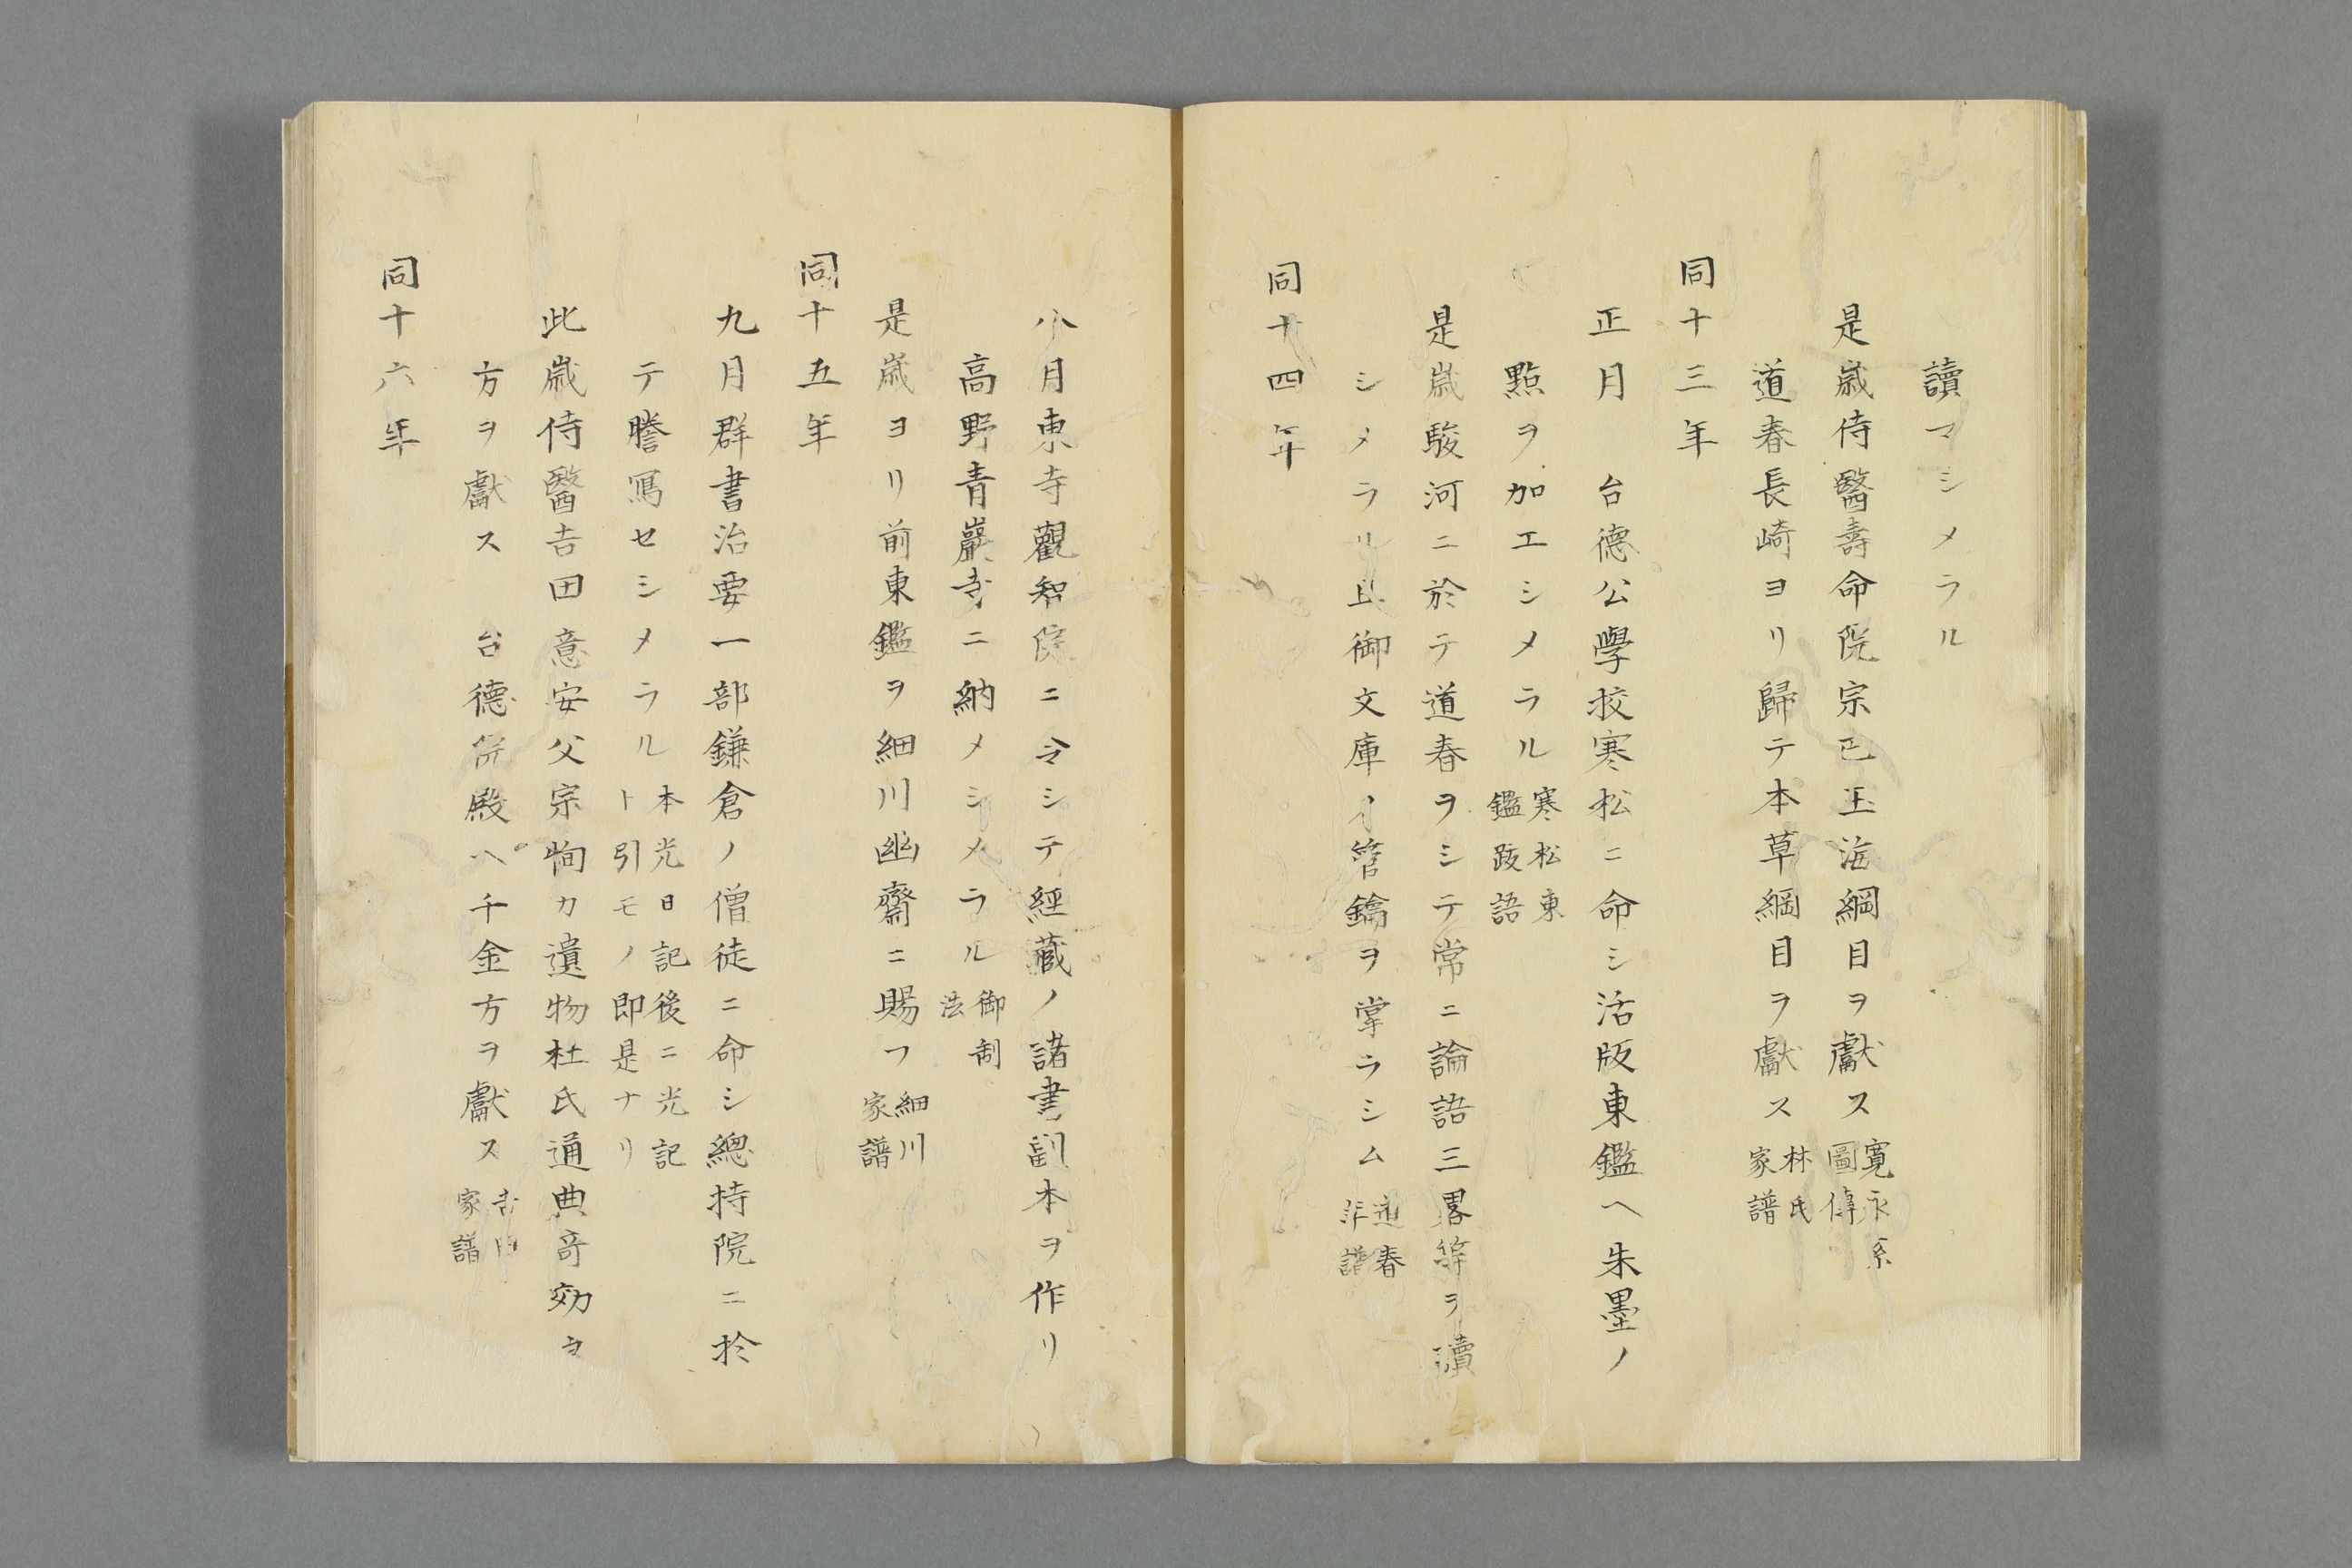 讀マシメラル
是歳侍醫壽命院宗巴玉海綱目ヲ獻ス
寛永系
圖傳
道春長崎ヨリ歸テ本草綱目ヲ獻ス
林氏
家譜
同十三年
正月 台德公學校寒松ニ命シ活版東鑑ヘ朱墨ノ
點ヲ加エシメラル
寒松東
鑑跋語
是歳駿河ニ於テ道春ヲシテ常ニ論語三畧等ヲ讀
シメラリ且御文庫ノ管鑰ヲ掌ラシム
道春
年譜
同十四年
八月東寺觀智院ニ令シテ經藏ノ諸書副本ヲ作リ
高野青巖寺ニ納メシメラル
御制
法
是歳ヨリ前東鑑ヲ細川幽齋ニ賜フ
細川
家譜
同十五年
九月群書治要一部鎌倉ノ僧徒ニ命シ總持院ニ於
テ謄寫セシメラル
本光日記後ニ光記
ト引モノ即是ナリ
此歳侍醫吉田意安父宗恂カ遺物杜氏通典奇効ヲ
方ヲ獻ス 台德院殿ヘ千金方ヲ獻ス
吉田
家譜
同十六年